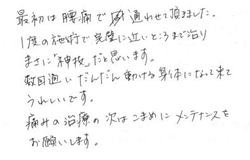 最初は腰痛で通わせて頂きました。
1度の施術で完璧に近いところまで治り
まさに「神技」だと思います。
数回通いだんだん動ける身体になって来て
うれしいです。
痛みの治療の次はこまめにメンテナンスを
お願いします。